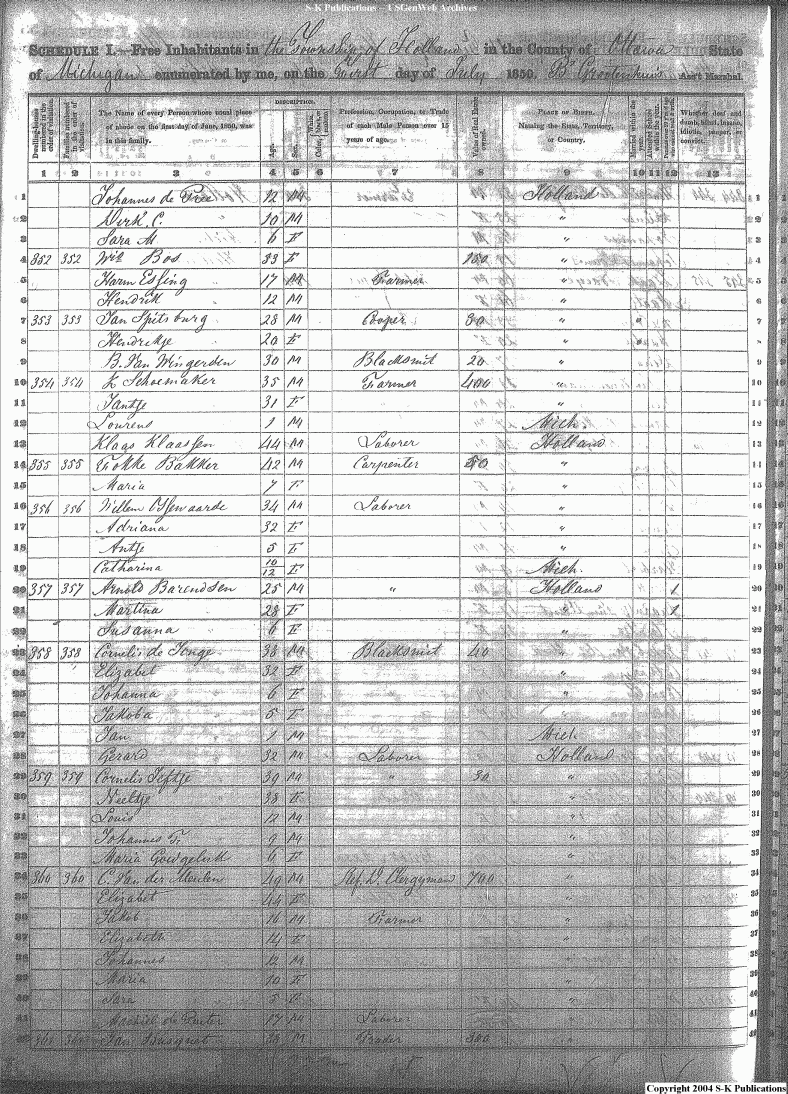 S-K Publications – USGenWeb Archives
Schedule I.—Free Inhabitants in the Township of Holland in the County of Ottawa State
of Michigan enumerated by me, on the First day of July 1850. B. Grootenhuis Ass't Marshal.
Dwelling-houses numbered in the order of visitation. Families numbered in the order of visitation. The Name of every Person whose usual place of abode on the first day of June, 1850, was in this family. DESCRIPTION. Age. Sex. Profession, Occupation, or Trade of each Male Person over 15 years of age. Value of Real Estate owned. Place of Birth. Naming the State, Territory, or Country. Married within the year. Whether deaf and dumb, blind, insane, idiotic, pauper, or convict.
1 2 3 4 5 6 7 8 9 10 11 12 13
1 Johannes de Free 12 M Holland 1
2 Dirk C. 10 M " 2
3 Sara M 6 F " 3
4 352 352 Wil Bos 33 F 150 " 4
5 Harm Essing 17 M Farmer " 5
6 Hendrik 12 M " 6
7 353 353 Jan Spitsburg 28 M Cooper 30 " " 7
8 Hendrikje 20 F " " 8
9 B. Van Wingerden 30 M Blacksmit 20 " 9
10 354 354 K Schoemaker 35 M Farmer 400 " 10
11 Jantje 31 F " 11
12 Lourens 1 M Mich. 12
13 Klaas Klaassen 44 M Laborer Holland 13
14 355 355 Fokke Bakker 42 M Carpenter 50 " 14
15 Maria 7 F " 15
16 356 356 Willem Ossewaarde 34 M Laborer " 16
17 Adriana 32 F " 17
18 Antje 5 F " 18
19 Catharina 10/12 F Mich. 19
20 357 357 Arnold Barendsen 25 M " Holland 1 20
21 Martina 28 F " 1 21
22 Susanna 6 F " 22
23 358 358 Cornelis de Jonge 38 M Blacksmit 40 " 23
24 Elizabet 32 F " 24
25 Johanna 6 F " 25
26 Jakoba 5 F " 26
27 Jan 1 M Mich 27
28 Gerard 32 M Laborer Holland 28
29 359 359 Cornelis 39 M " 50 " 29
30 Neeltje 38 F " 30
31 Louis 12 M " 31
32 Johannes F. 9 M " 32
33 Maria Goedgeluk 6 F " 33
34 360 360 C. Van der Meulen 49 M Ref. D. Clergyman 700 " 34
35 Elizabet 44 F " 35
36 Jakob 16 M Farmer " 36
37 Elizabeth 14 F " 37
38 Johannes 12 M " 38
39 Maria 10 F " 39
40 Sara 5 F " 40
41 Machiel de Ruiter 17 M Laborer " 41
42 361 361 Jan Busquet M 300 " 42
Copyright 2004 S-K Publications